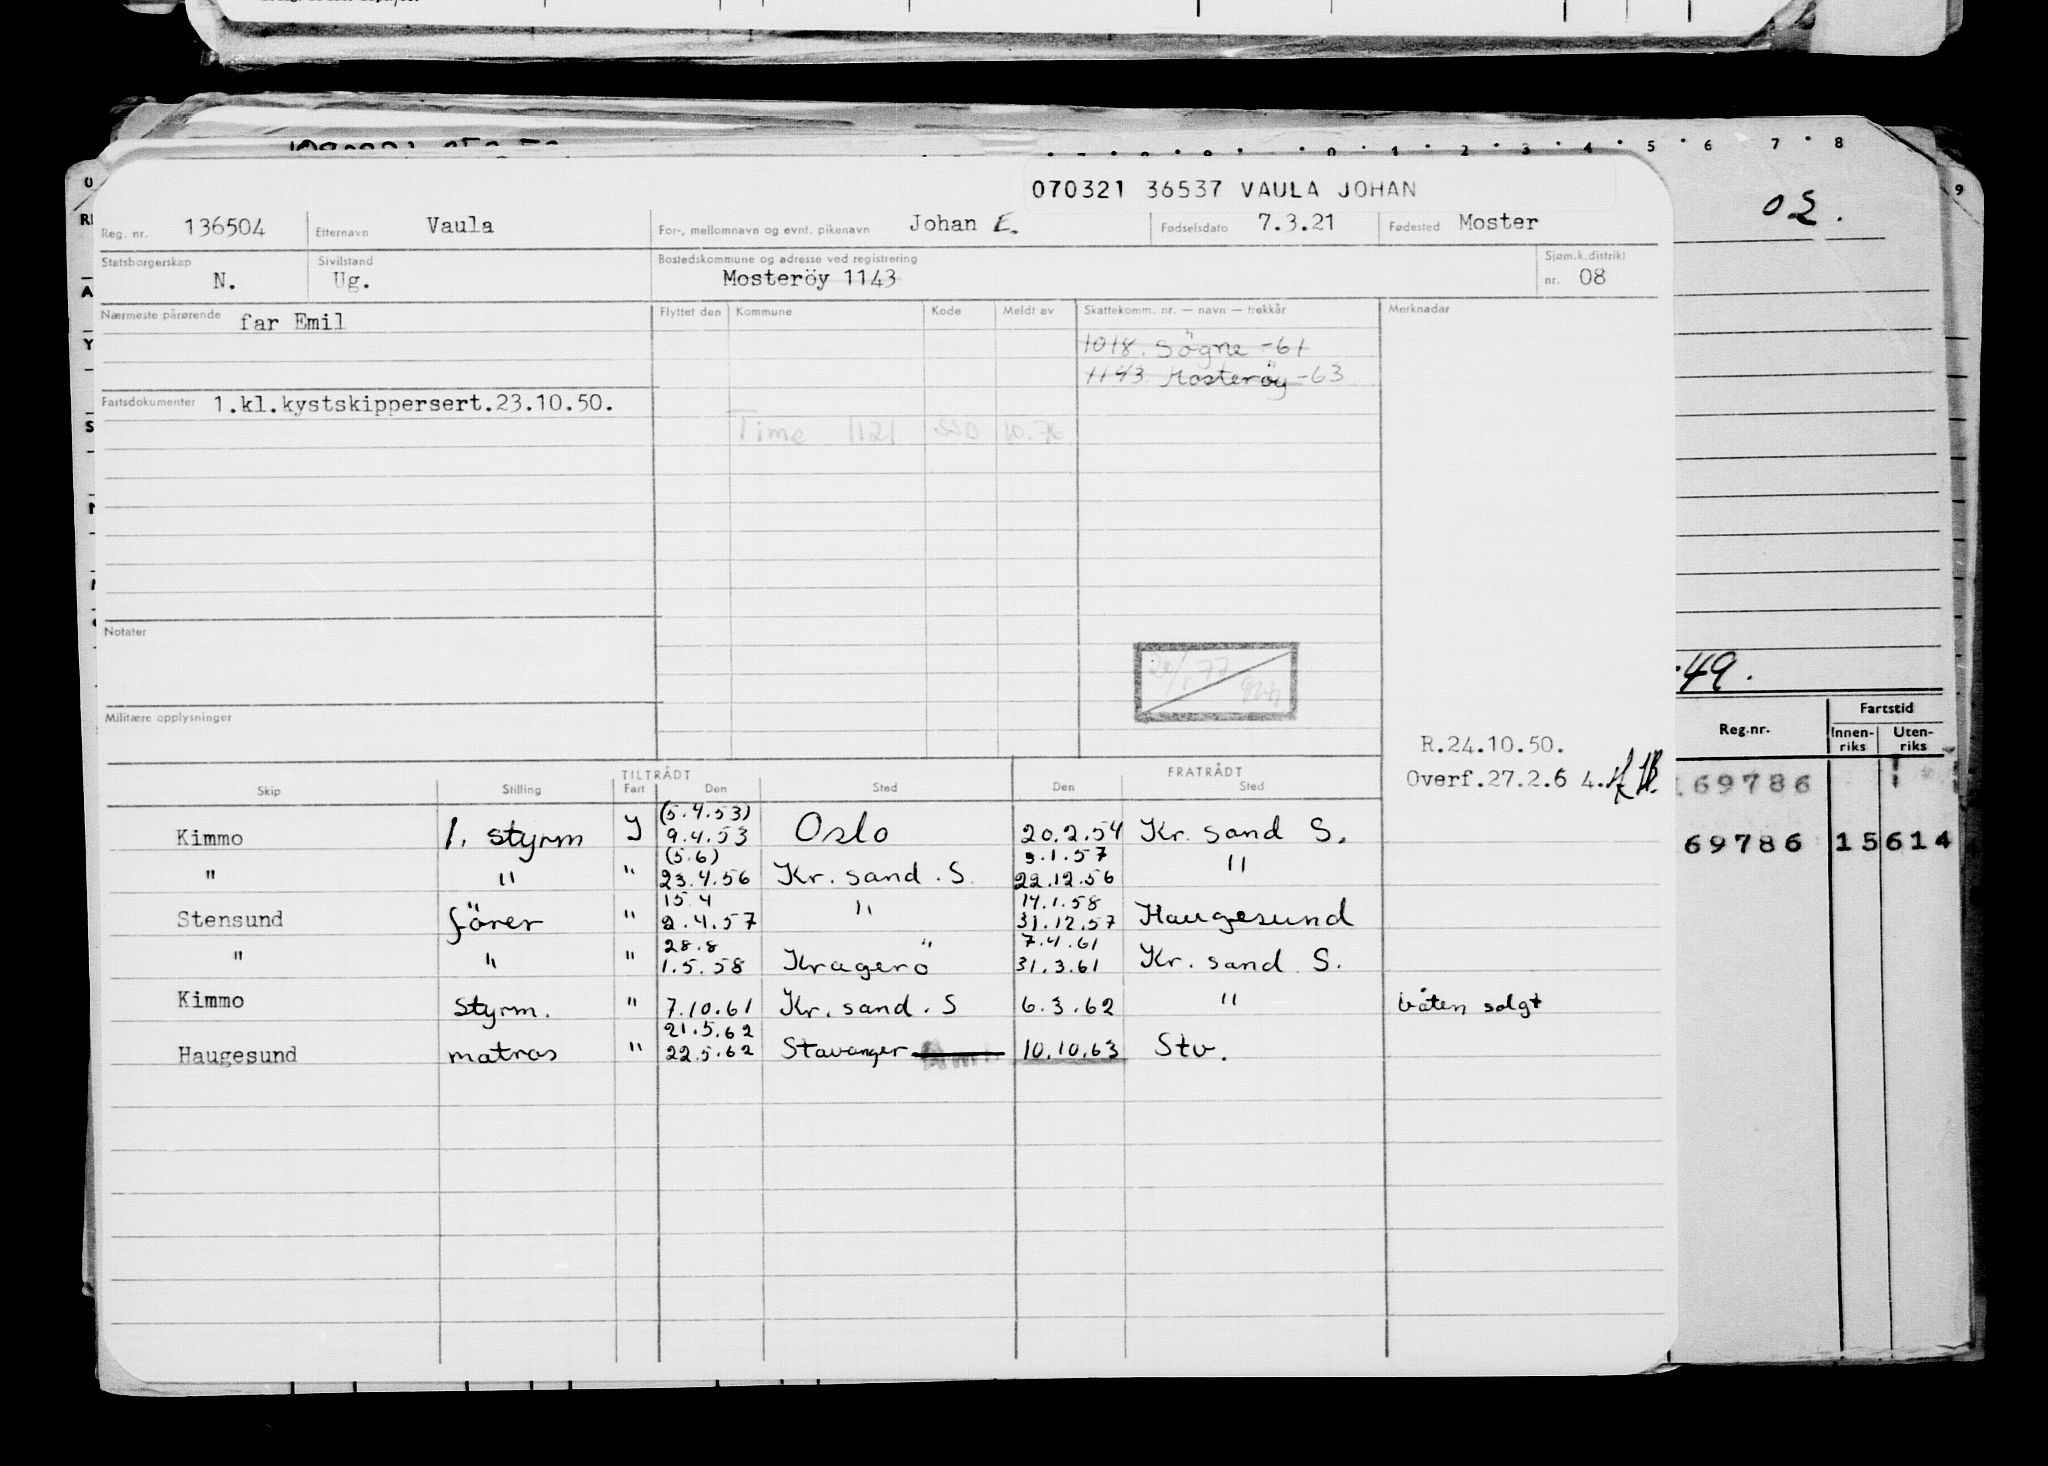 7 8
0 1 2 3 4 5 6 7 8
9
02.
070321 36537 VAULA JOHAN
Reg. nr. 136504 Etternavn Vaula For-, mellomnavn og evnt. pikenavn Johan E. Fødselsdato 7.3.21 Fødested Moster
Statsborgerskap N. Sivilstand Ug. Bostedskommune og adresse ved registrering Mosteröy 1143 Sjøm.k.distrikt nr. 08
Nærmeste pårørende far Emil Flyttet den Kommune Kode Meldt av Skattekomm. nr. — navn — trekkår Merknader
1018. Sögne -61
1143 Mosteröy -63
Fartsdokumenter 1.kl.kystskippersert.23.10.50.
Time 1121 SSD 10.76
Notater
20/1 77
Militære opplysninger
R.24.10.50.
Overf.27.2.6 4.
-49.
Reg.nr. Fartstid
Innen-riks Uten-riks
69786
69786 15614
TILTRÅDT FRATRÅDT
Skip Stilling Fart Den Sted Den Sted
(5.4.53)
Kimmo 1. styrm J 9.4.53 Oslo 20.2.54 Kr. sand S.
(5.6) 3.1.57
" " " 23.4.56 Kr. sand. S. 22.12.56 "
15.4 14.1.58
Stensund förer " 2.4.57 " 31.12.57 Haugesund
28.8 7.4.61
" " " 1.5.58 Kragerö 31.3.61 Kr. sand S.
Kimmo Styrm. " 7.10.61 Kr. sand. S 6.3.62 " båten solgt
21.5.62
Haugesund matros " 22.5.62 Stavanger 10.10.63 Stv.